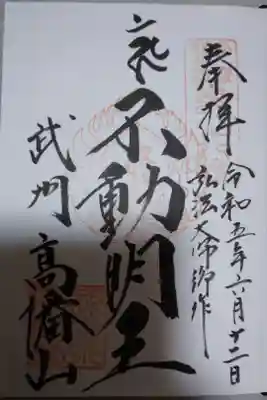 奉拝
令和五年六月廿二日
弘法大師御作
不動明王
武州
高幡山